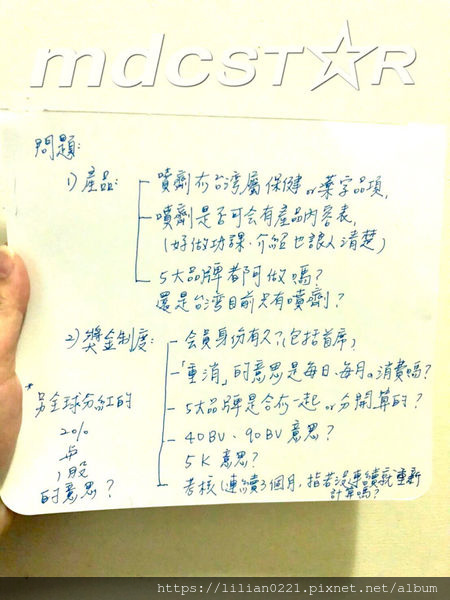 mdcSTAR
問題:
1) 產品: 噴劑在台灣屬保健or藥字品項,
噴劑是否可會有產品內容表,
(好做功課‧介紹也讓人清楚)
5大品牌都可做嗎?
還是台灣目前只有噴劑?
2) 獎金制度: 會員身份有久?(包括首席)
「重消」的意思是每日、每月の消費嗎?
5大品牌是合在一起or分開算的?
40BV、90BV意思?
5K意思?
考核(連續3個月,指若沒連續就重新
計算嗎?
*另全球分紅的
20%
與
1股
的意思?
https://lilian0221.pixnet.net/album